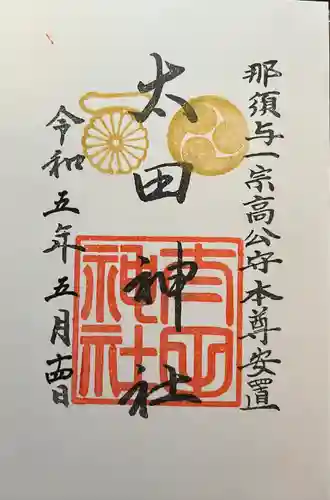 那須与一宗高公守本尊安置
大田神社
令和五年五月十四日
大田神社